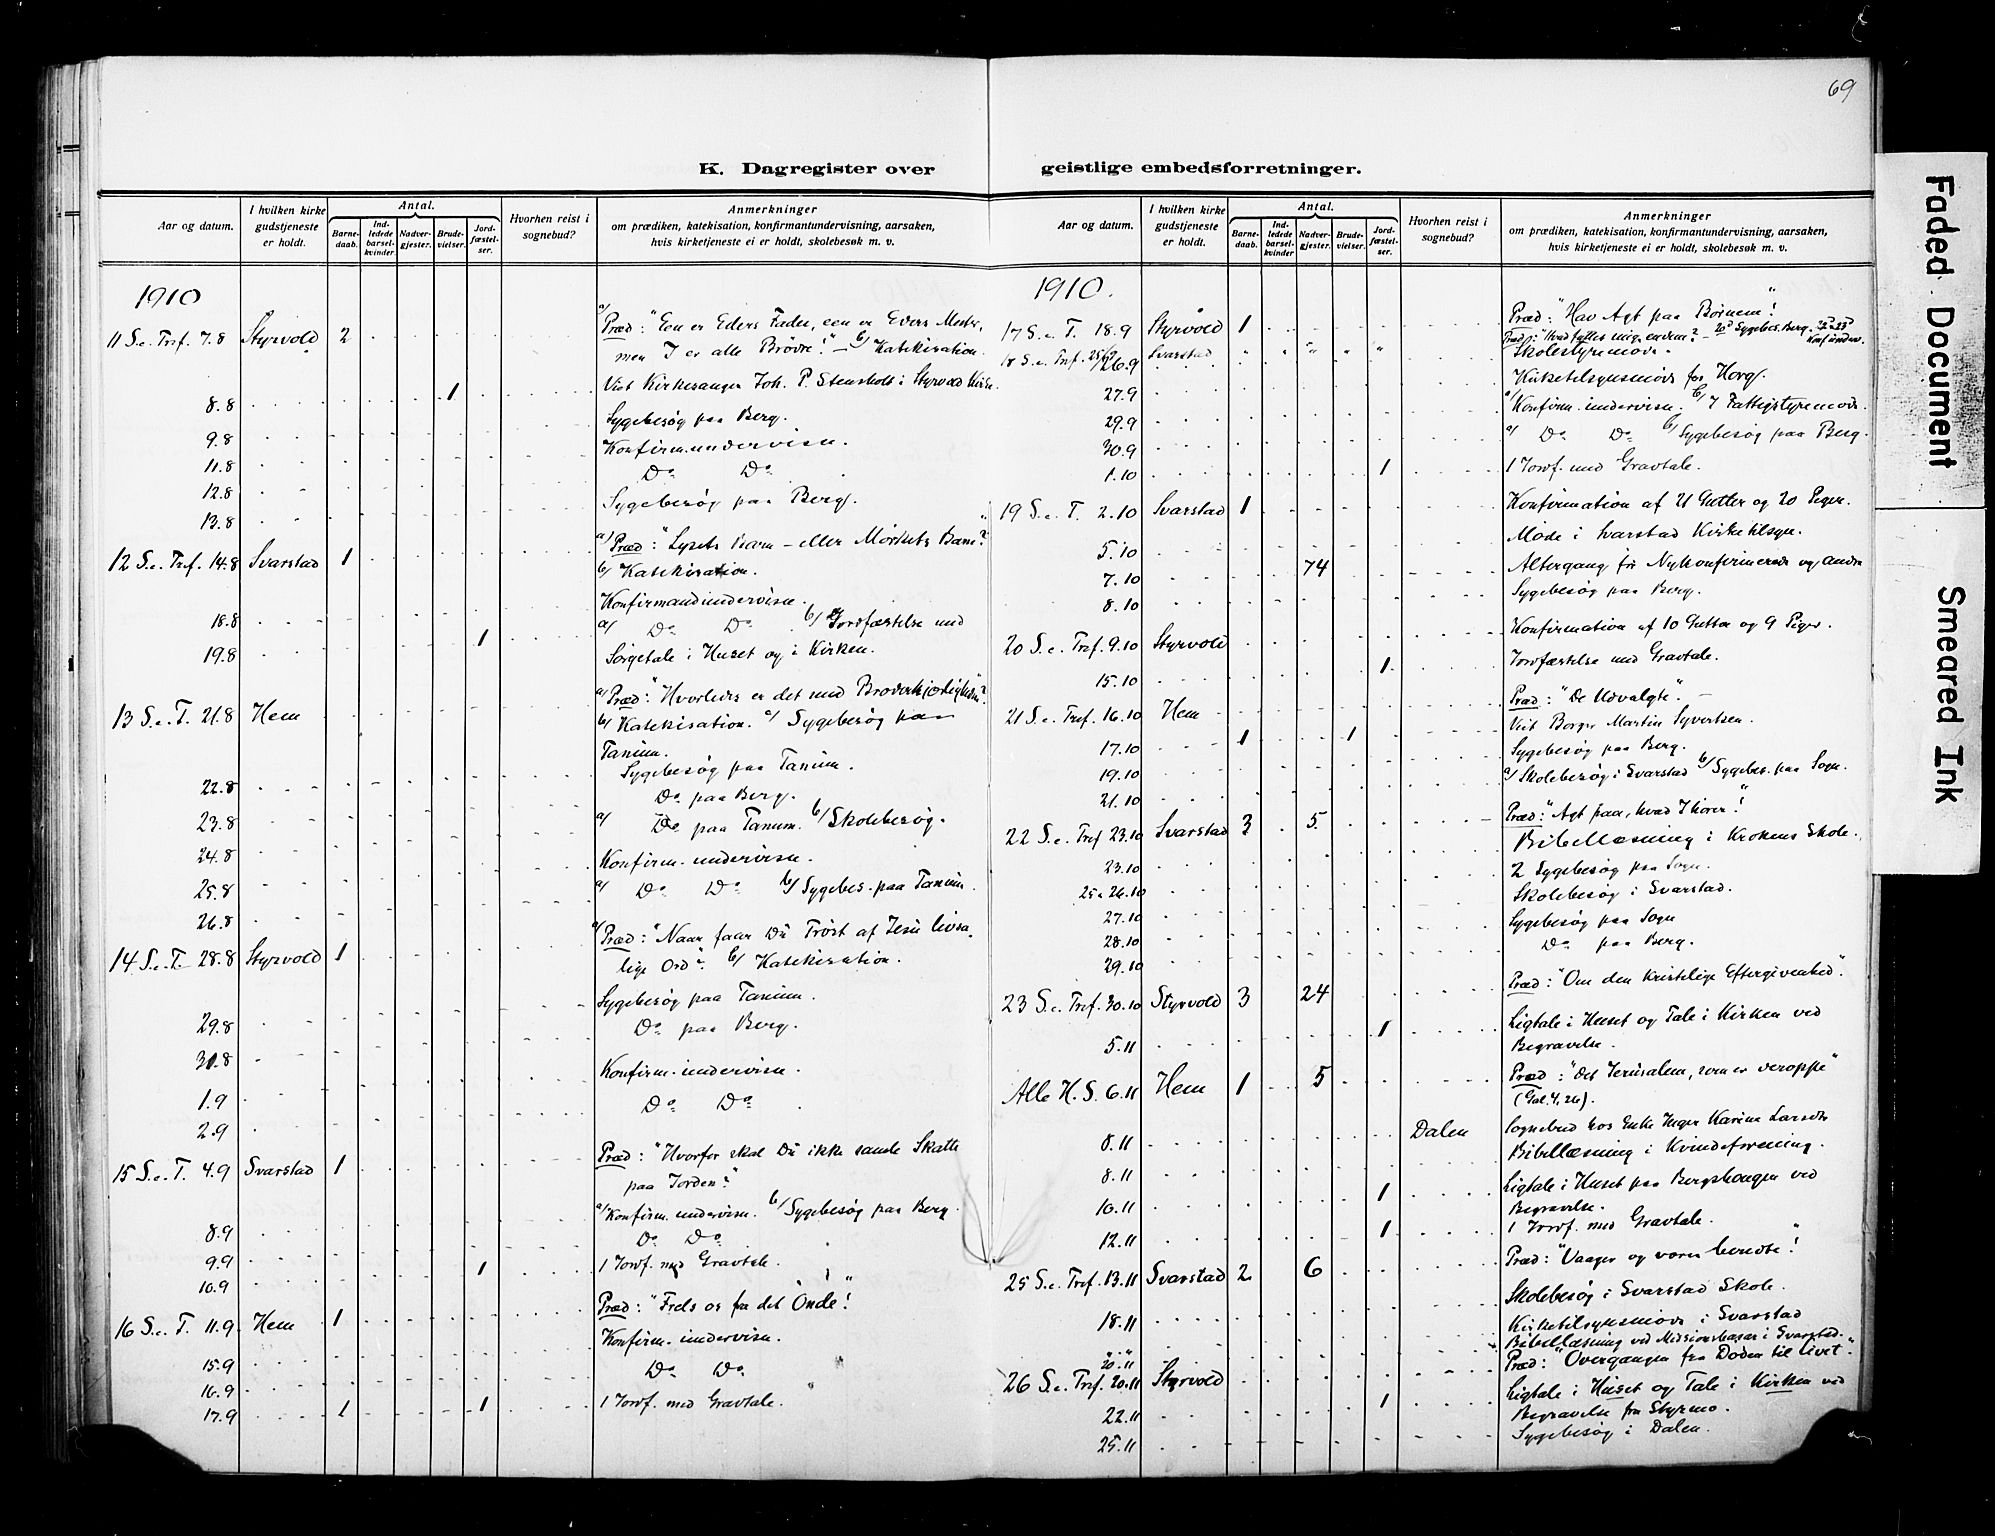 69
K. Dagregister over geistlige embedsforretninger.
Aar og datum. I hvilken kirke gudstjeneste er holdt. Antal. Barnedaab. Indledede barselkvinder. Nadvergjester. Brudevielser. Jordfæstelser. Hvorhen reist i sognebud? Anmerkninger om prædiken, katekisation, konfirmantundervisning, aarsaken, hvis kirketjeneste ei er holdt, skolebesøk m. v.
1910
11 S.e. Tref. 7.8 Styrvold 2 a/ Præd: "Een er Eders Fader, een er Eders Mester,
men I er alle Brødre!" – b/ Katekisation.
8.8 1 Viet Kirkesanger Joh. P. Stensholt i Styrvold Kirke.
9.8 Sygebesøg paa Berg.
11.8 Konfirm.undervisn.
12.8 Do Do
13.8 Sygebesøg paa Berg.
12 S.e. Tref. 14.8 Svarstad 1 a/ Præd: "Lysets Barn – eller Mørkets Barn?"
b/ Katekisation.
18.8 Konfirmandundervisn.
19.8 1 a/ Do Do b/ Jordfæstelse med
Sørgetale i Huset og i Kirken.
13 S.e. T. 21.8 Hem a/ Præd: "Hvorledes er det med Broderkjærligheden?"
b/ Katekisation. c/ Sygebesøg paa
Tanum.
22.8 Sygebesøg paa Tanum.
23.8 Do paa Berg.
24.8 a/ Do paa Tanum. b/ Skolebesøg.
25.8 Konfirm. undervisn.
26.8 a/ Do Do b/ Sygebes. paa Tanum.
14 S.e. T. 28.8 Styrvold 1 a/ Præd: "Naar faar Du Trøst af Jesu livsa-
lige Ord?" b/ Katekisation.
29.8 Sygebesøg paa Tanum.
31.8 Do paa Berg.
1.9 Konfirm. undervisn.
2.9 Do Do
15 S.e. T. 4.9 Svarstad 1 Præd: "Hvorfor skal Du ikke samle Skatte
paa Jorden?"
8.9 a/ Konfirm. undervisn. b/ Sygebesøg paa Berg.
9.9 Do Do
10.9 1 1 Jordf. med Gravtale.
16 S.e. T. 11.9 Hem 1 Præd: "Frels os fra det Onde!"
15.9 Konfirm. undervisn.
16.9 Do Do
17.9 1 1 1 Jordf. med Gravtale.
Aar og datum. I hvilken kirke gudstjeneste er holdt. Antal. Barnedaab. Indledede barselkvinder Nadvergjester. Brudevielser. Jordfæstelser. Hvorhen reist i sognebud? Anmerkninger om prædiken, katekisation, konfirmantundervisning, aarsaken, hvis kirketjeneste ei er holdt, skolebesøk m. v.
1910.
17 S.e. T. 18.9 Styrvold 1 Præd: "Hav Agt paa Børnene!"
18 S.e. Tref. 25/9 Svarstad Præd: "Hvad fattes mig endnu?" – Sygebes. Berg.
26.9 Skolestyremøde.
27.9 Kirketilsynsmøde for Hovg.
29.9 a/ Konfirm. undervisn. b/ I Fattigstyremøde.
30.9 a/ Do Do b/ Sygebesøg paa Berg.
1.10 1 1 Jordf. med Gravtale.
19 S.e. T. 2.10 Svarstad 1 Konfirmation af 21 Gutter og 20 Piger.
5.10 Møde i Svarstad Kirketilsyn.
7.10 74 Altergang for Nykonfirmerede og Andre
8.10 Sygebesøg paa Berg.
20 S.e. Tref. 9.10 Styrvold Konfirmation af 10 Gutter og 9 Piger.
15.10 1 Jordfæstelse med Gravtale.
21 S.e. Tref. 16.10 Hem Præd: "De Udvalgte". –
17.10 1 1 Viet Borger Martin Syvertsen.
19.10 Sygebesøg paa Berg.
21.10 a/ Skolebesøg i Svarstad b/ Sygebes. paa Sogn.
22 S.e. Tref 23.10 Svarstad 3 5 Præd: "Agt paa, hvad I hører!"
23.10 Bibellæsning i Krokens Skole.
25 & 26.10 2 Sygebesøg paa Sogn.
27.10 Skolebesøg i Svarstad.
28.10 Sygebesøg paa Sogn
29.10 Do paa Berg.
23 S.e. Tref. 30.10 Styrvold 3 24 Præd: "Om den kristelige Eftergivenhed".
5.11 1 Ligtale i Huset og Tale i Kirken ved
Begravelse.
Alle H. S. 6.11 Hem 1 5 Præd: "Det Jerusalem, som er veroppe"
(Gal. 4, 26).
8.11 Dalen Sognebud hos Enke Inger Karine Larsdtr
8.11 Bibellæsning i Kvindeforening.
10.11 1 Ligtale i Huset paa Bergshougen ved
Begravelse.
12.11 1 1 Jordf. med Gravtale.
25 S.e. Tref. 13.11 Svarstad 2 6 Præd: "Vaager og vorer beredte!"
18.11 Skolebesøg i Svarstad Skole.
Kirketilsynsmøde i Svarstad
20.11 Bibellæsning ved Missionsbasar i Svarstad.
26 S.e. Tref. 20.11 Styrvold Præd: "Overgangen fra Døden til Livet".
22.11 1 Ligtale i Huset og Tale i Kirken ved
Begravelse fra Styrmo.
25.11 Sygebesøg i Dalen.
Faded Document
Smeared Ink